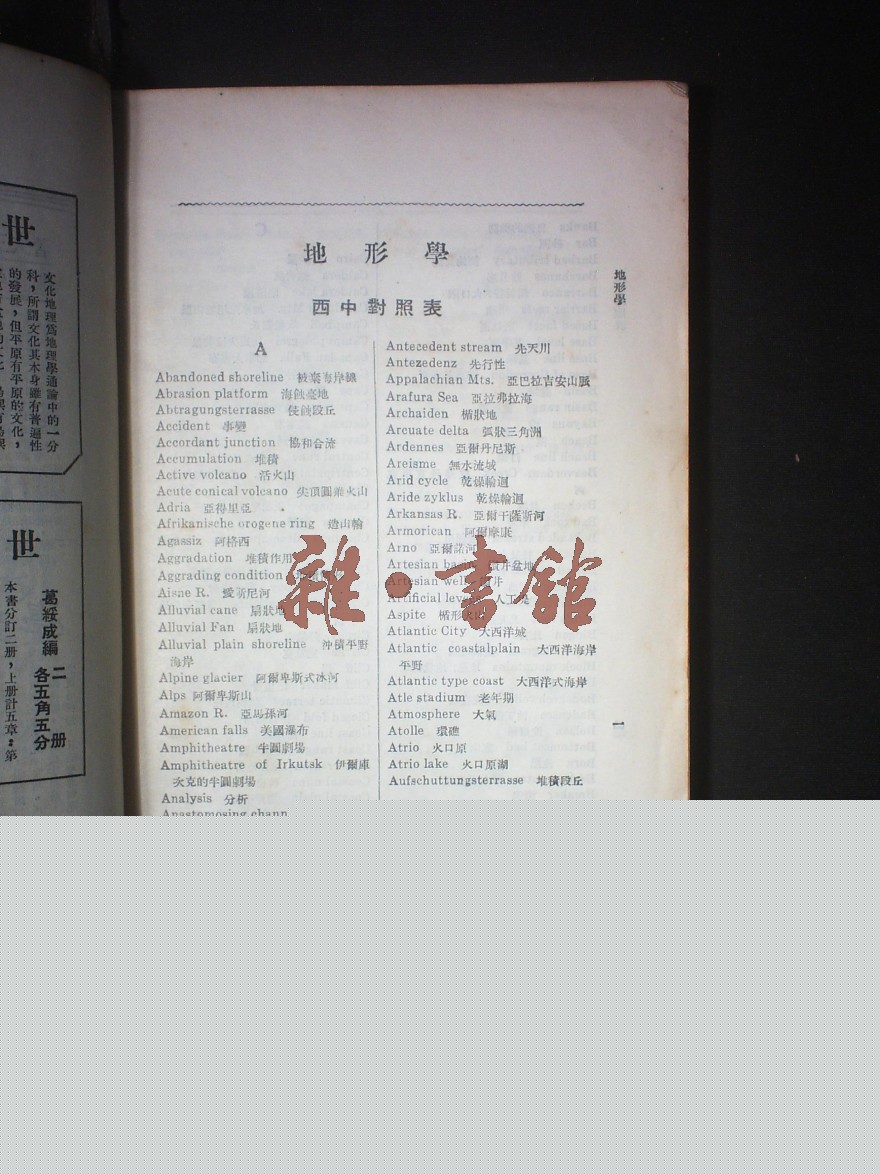 地形學
西中對照表
A
Abandoned shoreline 被棄海岸線
Abrasion platform 海蝕臺地
Abtragungsterrasse 侵蝕段丘
Accident 事變
Accordant junction 協和合流
Accumulation 堆積
Active volcano 活火山
Acute conical volcano 尖頂圓錐火山
Adria 亞得里亞
Afrikanische orogene ring 造山輪
Agassiz 阿格西
Aggradation 堆積作用
Aggrading condition
Aisne R. 愛斯尼河
Alluvial cane 扇狀地
Alluvial Fan 扇狀地
Alluvial plain shoreline 沖積平野
海岸
Alpine glacier 阿爾卑斯式冰河
Alps 阿爾卑斯山
Amazon R. 亞馬孫河
American falls 美國瀑布
Amphitheatre 半圓劇場
Amphitheatre of Irkutsk 伊爾庫
次克的半圓劇場
Analysis 分析
Anastomosing chann
Antecedent stream 先天川
Antezedenz 先行性
Appalachian Mts. 亞巴拉吉安山脈
Arafura Sea 亞拉弗拉海
Archaiden 楯狀地
Arcuate delta 弧狀三角洲
Ardennes 亞爾丹尼斯
Areisme 無水流域
Arid cycle 乾燥輪迴
Aride zyklus 乾燥輪迴
Arkansas R. 亞爾干薩斯河
Armorican 阿爾摩康
Arno 亞爾諾河
Artesian basin 井盆地
Artesian well 井
Artificial levee 人工堤
Aspite 楯形火山
Atlantic City 大西洋城
Atlantic coastalplain 大西洋海岸
平野
Atlantic type coast 大西洋式海岸
Atle stadium 老年期
Atmosphere 大氣
Atolle 環礁
Atrio 火口原
Atrio lake 火口原湖
Aufschuttungsterrasse 堆積段丘
地形學
一
世
文化地理爲地理學通論中的一分
科，所謂文化其本身雖有普遍性
的發展，但平原有平原的文化，
世
葛綏成編
二册
各五角五分
本書分訂二册，上册計五章：第
雜·書館